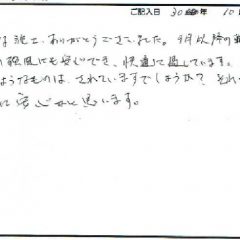 ご記入日 30 年 10
な施工、ありがとうございました。9月以降の
強風にも安心でき、快適に過しています。
ようなものは、されていますでしょうか? それ
安心かと思います。